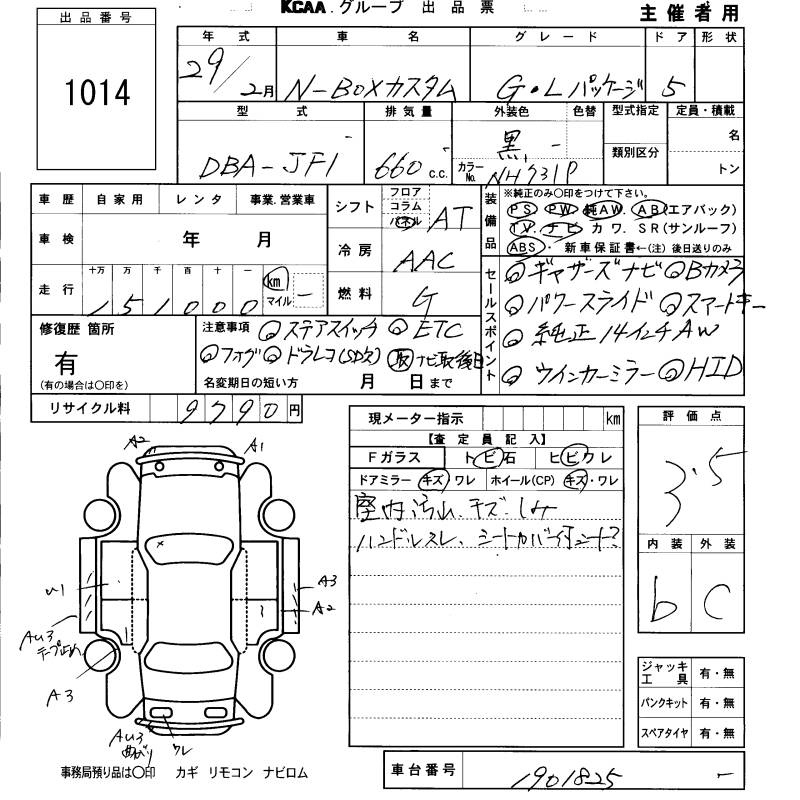 KCAA.グループ 出品票 主催者用
出品番号
1014
年式 車名 グレード ドア 形状
29/2月 N-BOXカスタム G・Lパッケージ 5
型式 排気量 外装色 色替 型式指定 定員・積載
DBA-JF1 660 c.c. 黒 - カラーNo. NH731P 類別区分 名
トン
車歴 自家用 レンタ 事業.営業車
車検 年 月
走行 十万 万 千 百 十 一 km マイル
151000 -
シフト フロア コラム パネル AT
冷房 AAC
燃料 G
装備品 ※純正のみ〇印をつけて下さい。
PS PW 純AW. AB(エアバック)
TV. ナビ カワ. SR(サンルーフ)
ABS・ 新車保証書←(注) 後日送りのみ
セールスポイント
◎ギャザーズナビ ◎Bカメラ
◎パワースライド ◎スマートキー
◎純正14インチAW
◎ウインカーミラー ◎HID
修復歴 箇所
有
(有の場合は〇印を)
注意事項 ◎ステアスイッチ ◎ETC
◎フォグ ◎ドラレコ(SD欠) 取 ナビ取後日
名変期日の短い方 月 日まで
リサイクル料 9790円
現メーター指示 km
【査定員記入】
Fガラス トビ石 ヒビワレ
ドアミラー キズ ワレ ホイール(CP) キズ・ワレ
室内汚れ、キズ、しみ
ハンドルスレ、シートカバー付
評価点
3.5
内装 外装
b C
A2 A1
U1 A3
A2
AU3
テープ止め
A3
AU3
ワレ
ジャッキ工具 有・無
パンクキット 有・無
スペアタイヤ 有・無
事務局預り品は〇印 カギ リモコン ナビロム
車台番号 1901825 -